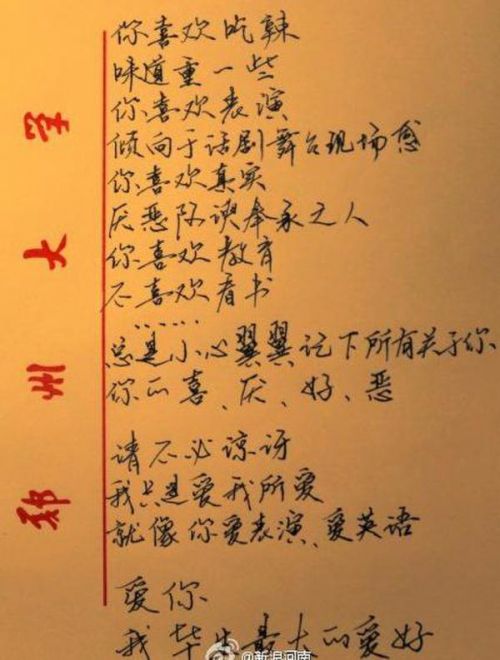 郑州大学
你喜欢吃辣
味道重一些
你喜欢表演
倾向于话剧舞台现场感
你喜欢真实
厌恶阿谀奉承之人
你喜欢教育
不喜欢看书
……
总是小心翼翼记下所有关于你、
你的喜、厌、好、恶
请不必谅讶
我只是爱我所爱
就像你爱表演、爱英语
爱你
我毕生最大的爱好
@新浪河南